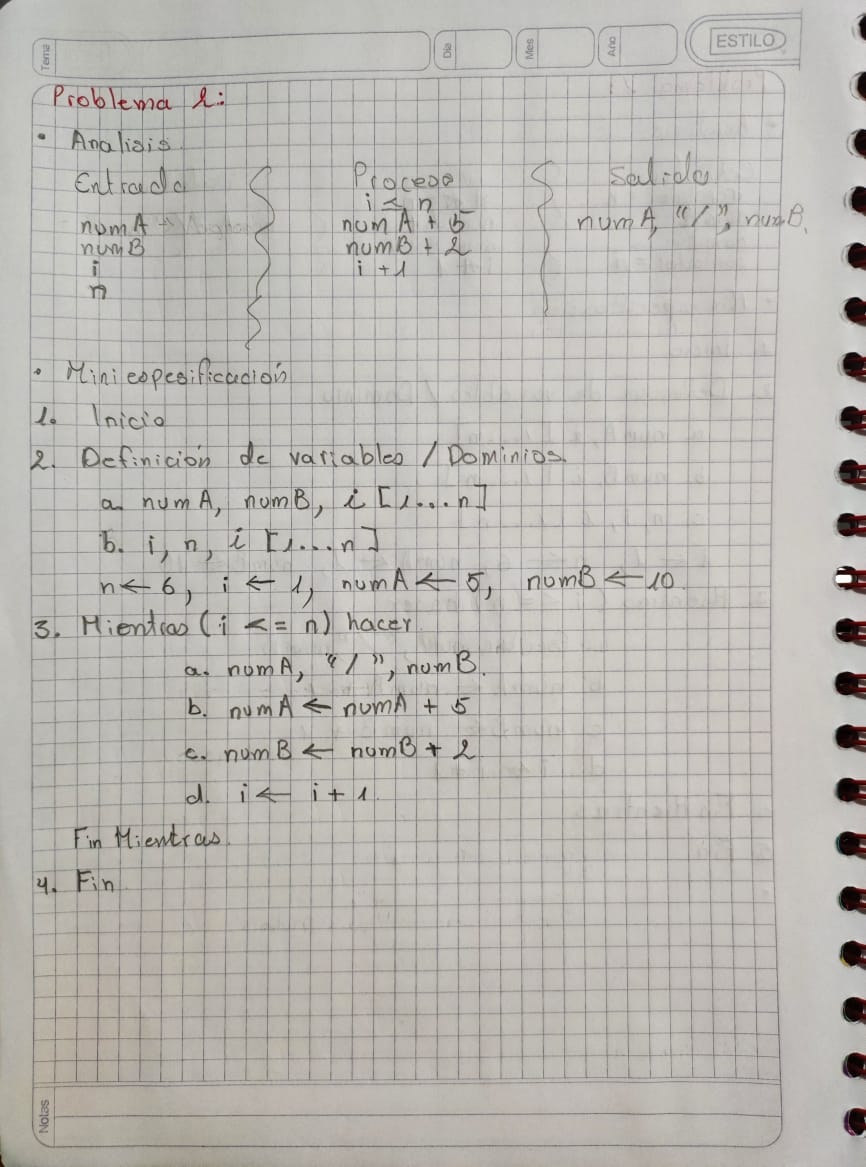 Tema
Dia
Mes
Año
ESTILO
Problema 1:
• Analisis
Entrada Proceso Salida
i ≤ n
numA numA + 5 numA, "/", numB.
numB numB + 2
i i + 1
n
• Mini especificación
1. Inicio
2. Definición de variables / Dominios.
a. numA, numB, i [1...n]
b. i, n, i [1...n]
n ← 6, i ← 1, numA ← 5, numB ← 10.
3. Mientras (i <= n) hacer
a. numA, "/", numB.
b. numA ← numA + 5
c. numB ← numB + 2
d. i ← i + 1.
Fin Mientras.
4. Fin
Notas